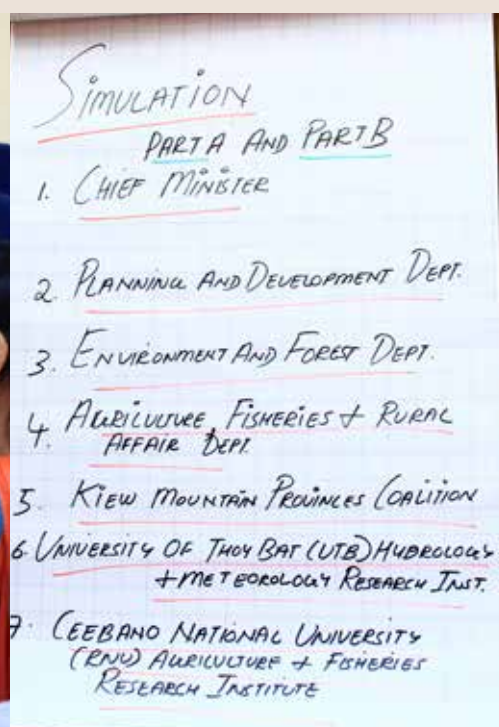 SIMULATION
PART A AND PART B
1. CHIEF MINISTER
2. PLANNING AND DEVELOPMENT DEPT.
3. ENVIRONMENT AND FOREST DEPT.
4. AGRICULTURE, FISHERIES + RURAL
AFFAIR DEPT.
5. KIEW MOUNTAIN PROVINCES COALITION
6. UNIVERSITY OF THOY BAT (UTB) HYDROLOGY
+ METEOROLOGY RESEARCH INST.
7. CEEBANO NATIONAL UNIVERSITY
(RNU) AGRICULTURE + FISHERIES
RESEARCH INSTITUTE